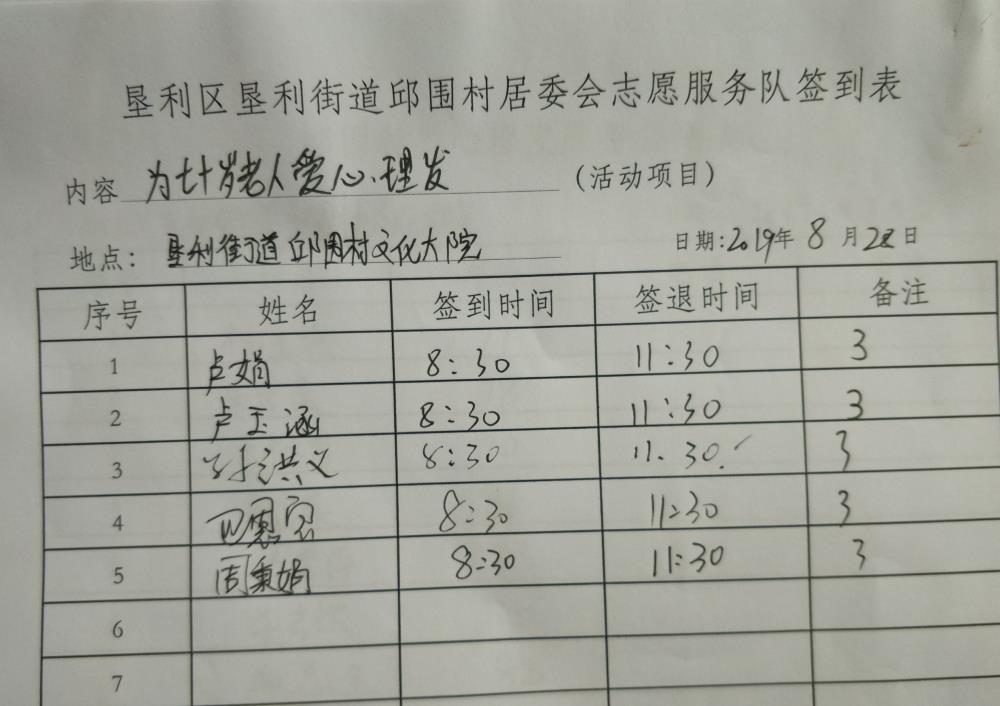 垦利区垦利街道邱围村居委会志愿服务队签到表
内容 为七十岁老人爱心理发 (活动项目)
地点: 垦利街道邱围村文化大院 日期:2019年 8 月 日
序号 姓名 签到时间 签退时间 备注
1 卢娟 8:30 11:30 3
2 卢玉涵 8:30 11:30 3
3 孙洪义 8:30 11.30. 3
4 8:30 11:30 3
5 周秉娟 8:30 11:30 3
6
7